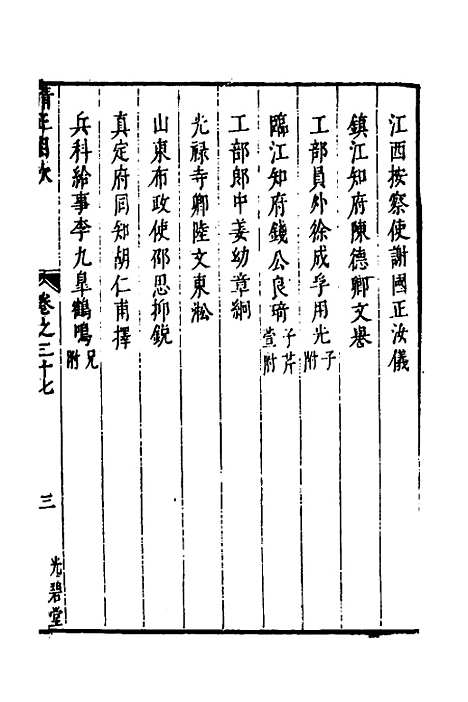 江西按察使謝國正汝儀
鎮江知府陳德卿文譽
工部員外徐成孚用光子附
臨江知府錢公良琦子芹萱附
工部郎中姜幼章絅
光禄寺卿陸文東淞
山東布政使邵思抑銳
真定府同知胡仁甫擇
兵科給事李九臯鶴鳴兄附
卷之三十七
三
光碧堂